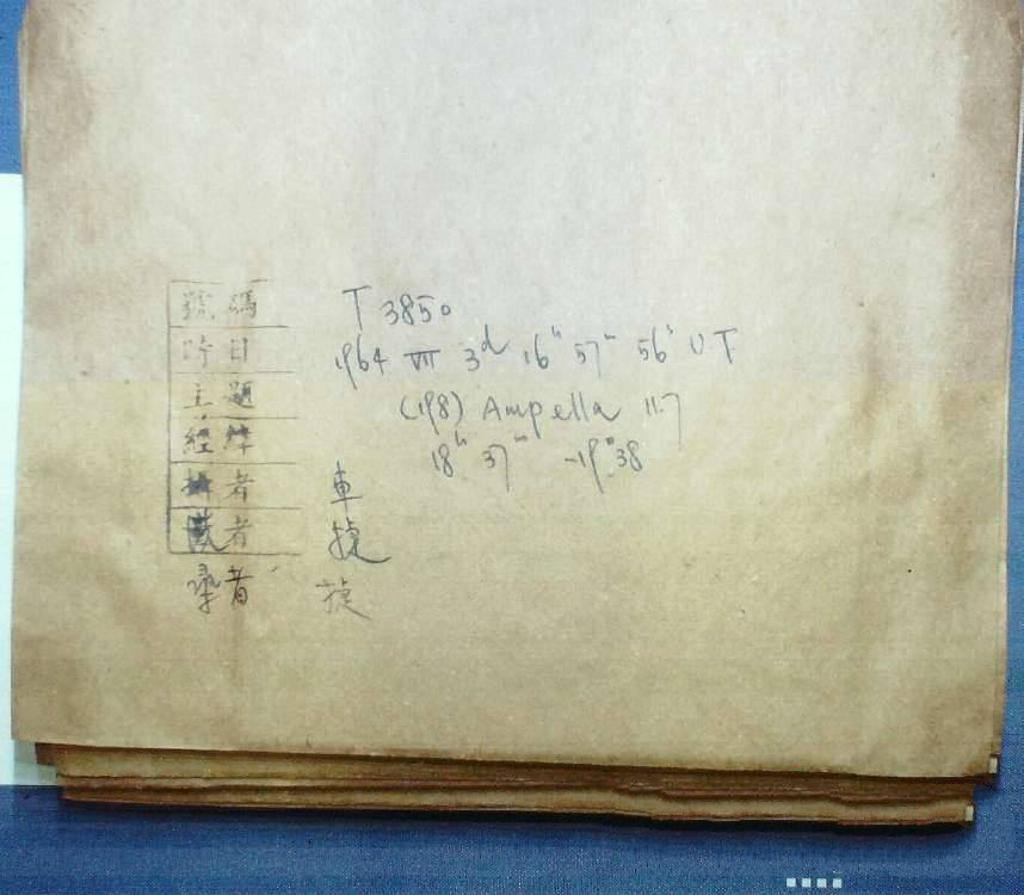 號碼 T 3850
時日 1964 VII 3d 16h 57m 56s UT
主題 (198) Ampella 11.7
經緯 18h 37m -19°38
攝者 車
者 捷
者 捷